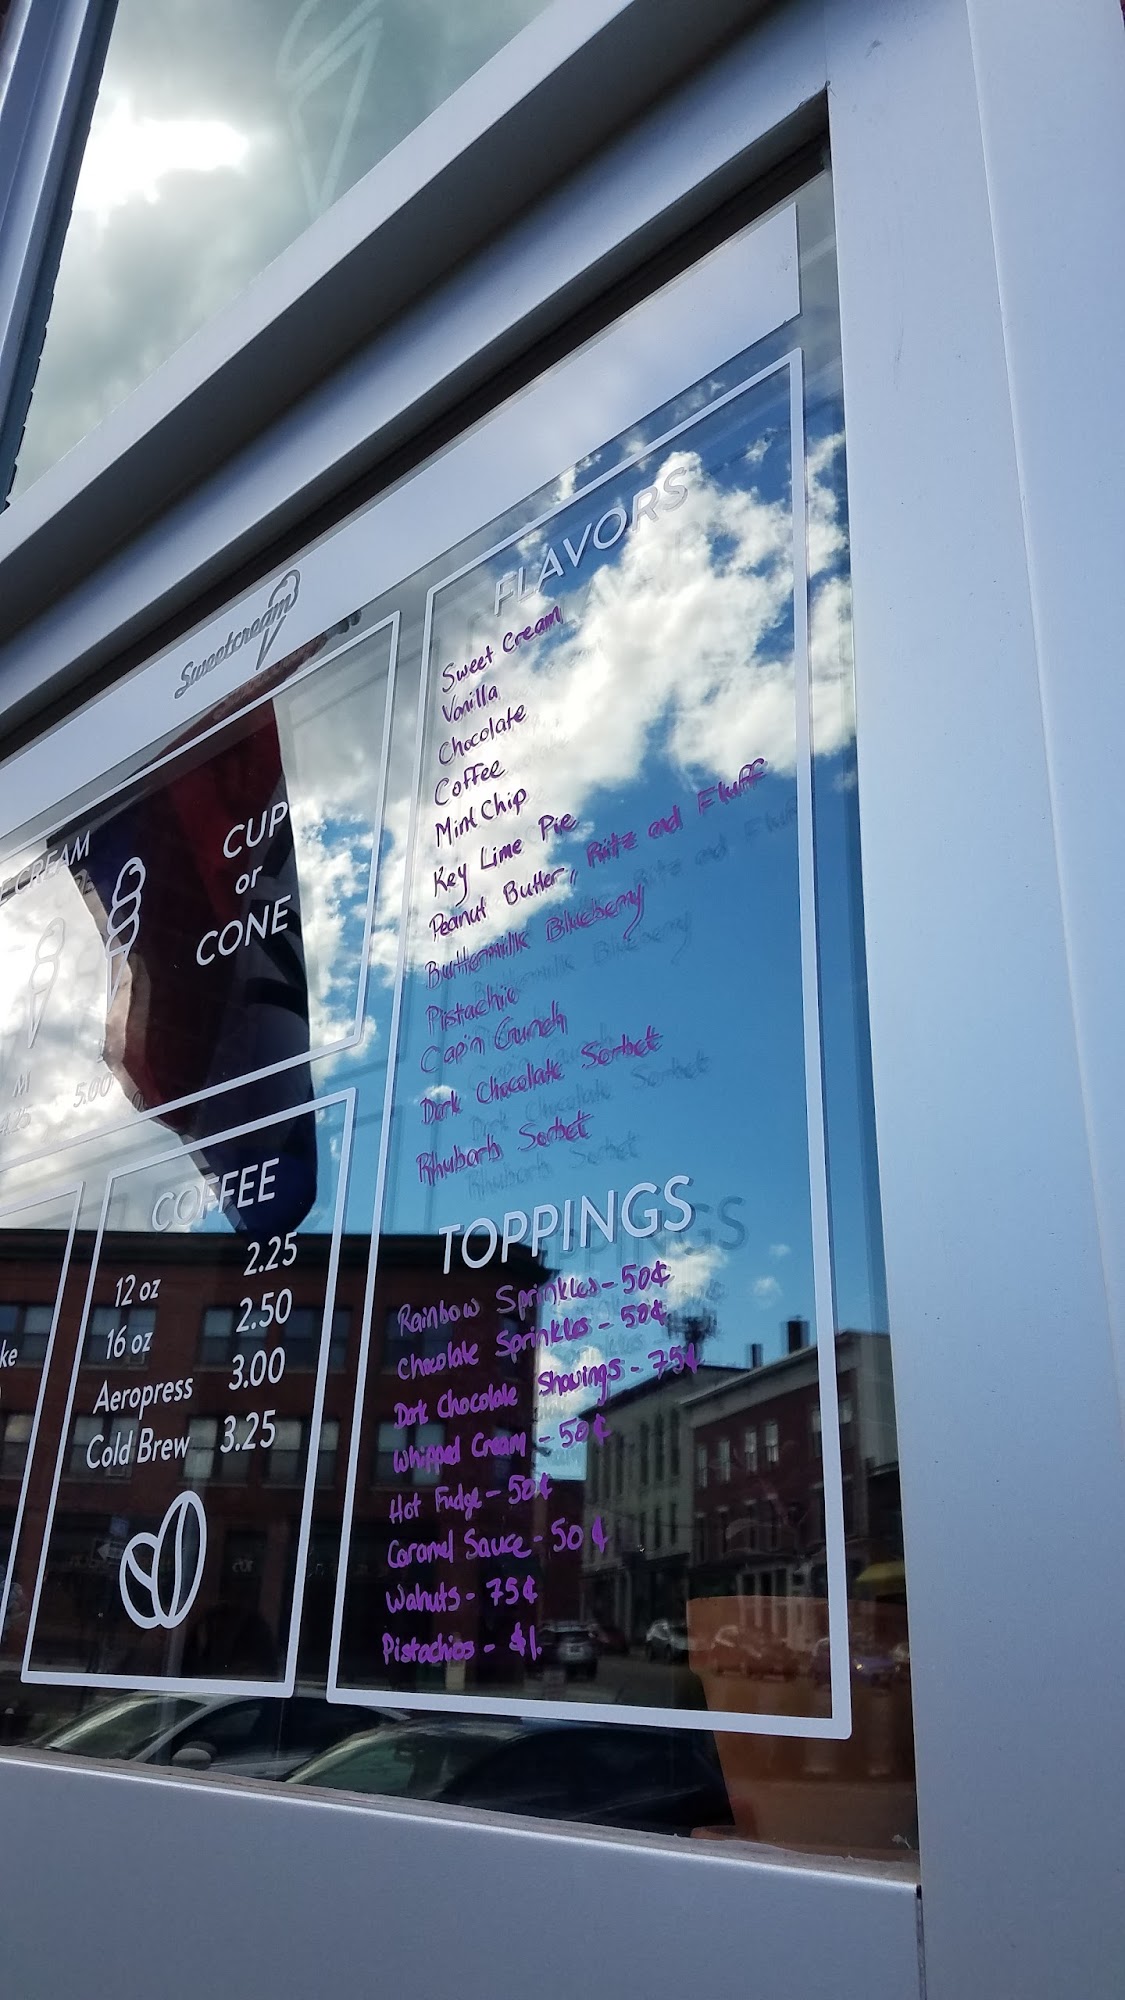 Sweetcream
CREAM
CUP
or
CONE
M
4.25 5.00
COFFEE
12 oz 2.25
16 oz 2.50
Aeropress 3.00
Cold Brew 3.25
FLAVORS
Sweet Cream
Vanilla
Chocolate
Coffee
Mint Chip
Key Lime Pie
Peanut Butter, Ritz and Fluff
Buttermilk Blueberry
Pistachio
Cap'n Crunch
Dark Chocolate Sorbet
Rhubarb Sorbet
TOPPINGS
Rainbow Sprinkles - 50¢
Chocolate Sprinkles - 50¢
Dark Chocolate Shavings - 75¢
Whipped Cream - 50¢
Hot Fudge - 50¢
Caramel Sauce - 50¢
Walnuts - 75¢
Pistachios - $1.